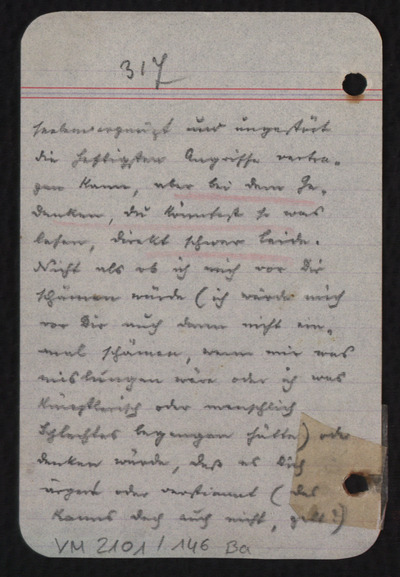 317
seelenvergnügt und ungestört
die heftigsten Angriffe vertra-
gen kann, aber bei dem Ge-
danken, du könntest so was
lesen, direkt schwer leide.
Nicht als ob ich mich vor Dir
schämen würde (ich würde mich
vor Dir auch dann nicht ein-
mal schämen, wenn mir was
mislungen wäre oder ich was
künstlerisch oder menschlich
Schlechtes begangen hätte) oder
denken würde, daß es Dich
ärgert oder verstimmt (das
kanns doch auch nicht, gelt?)
VM 2101 / 146 Ba